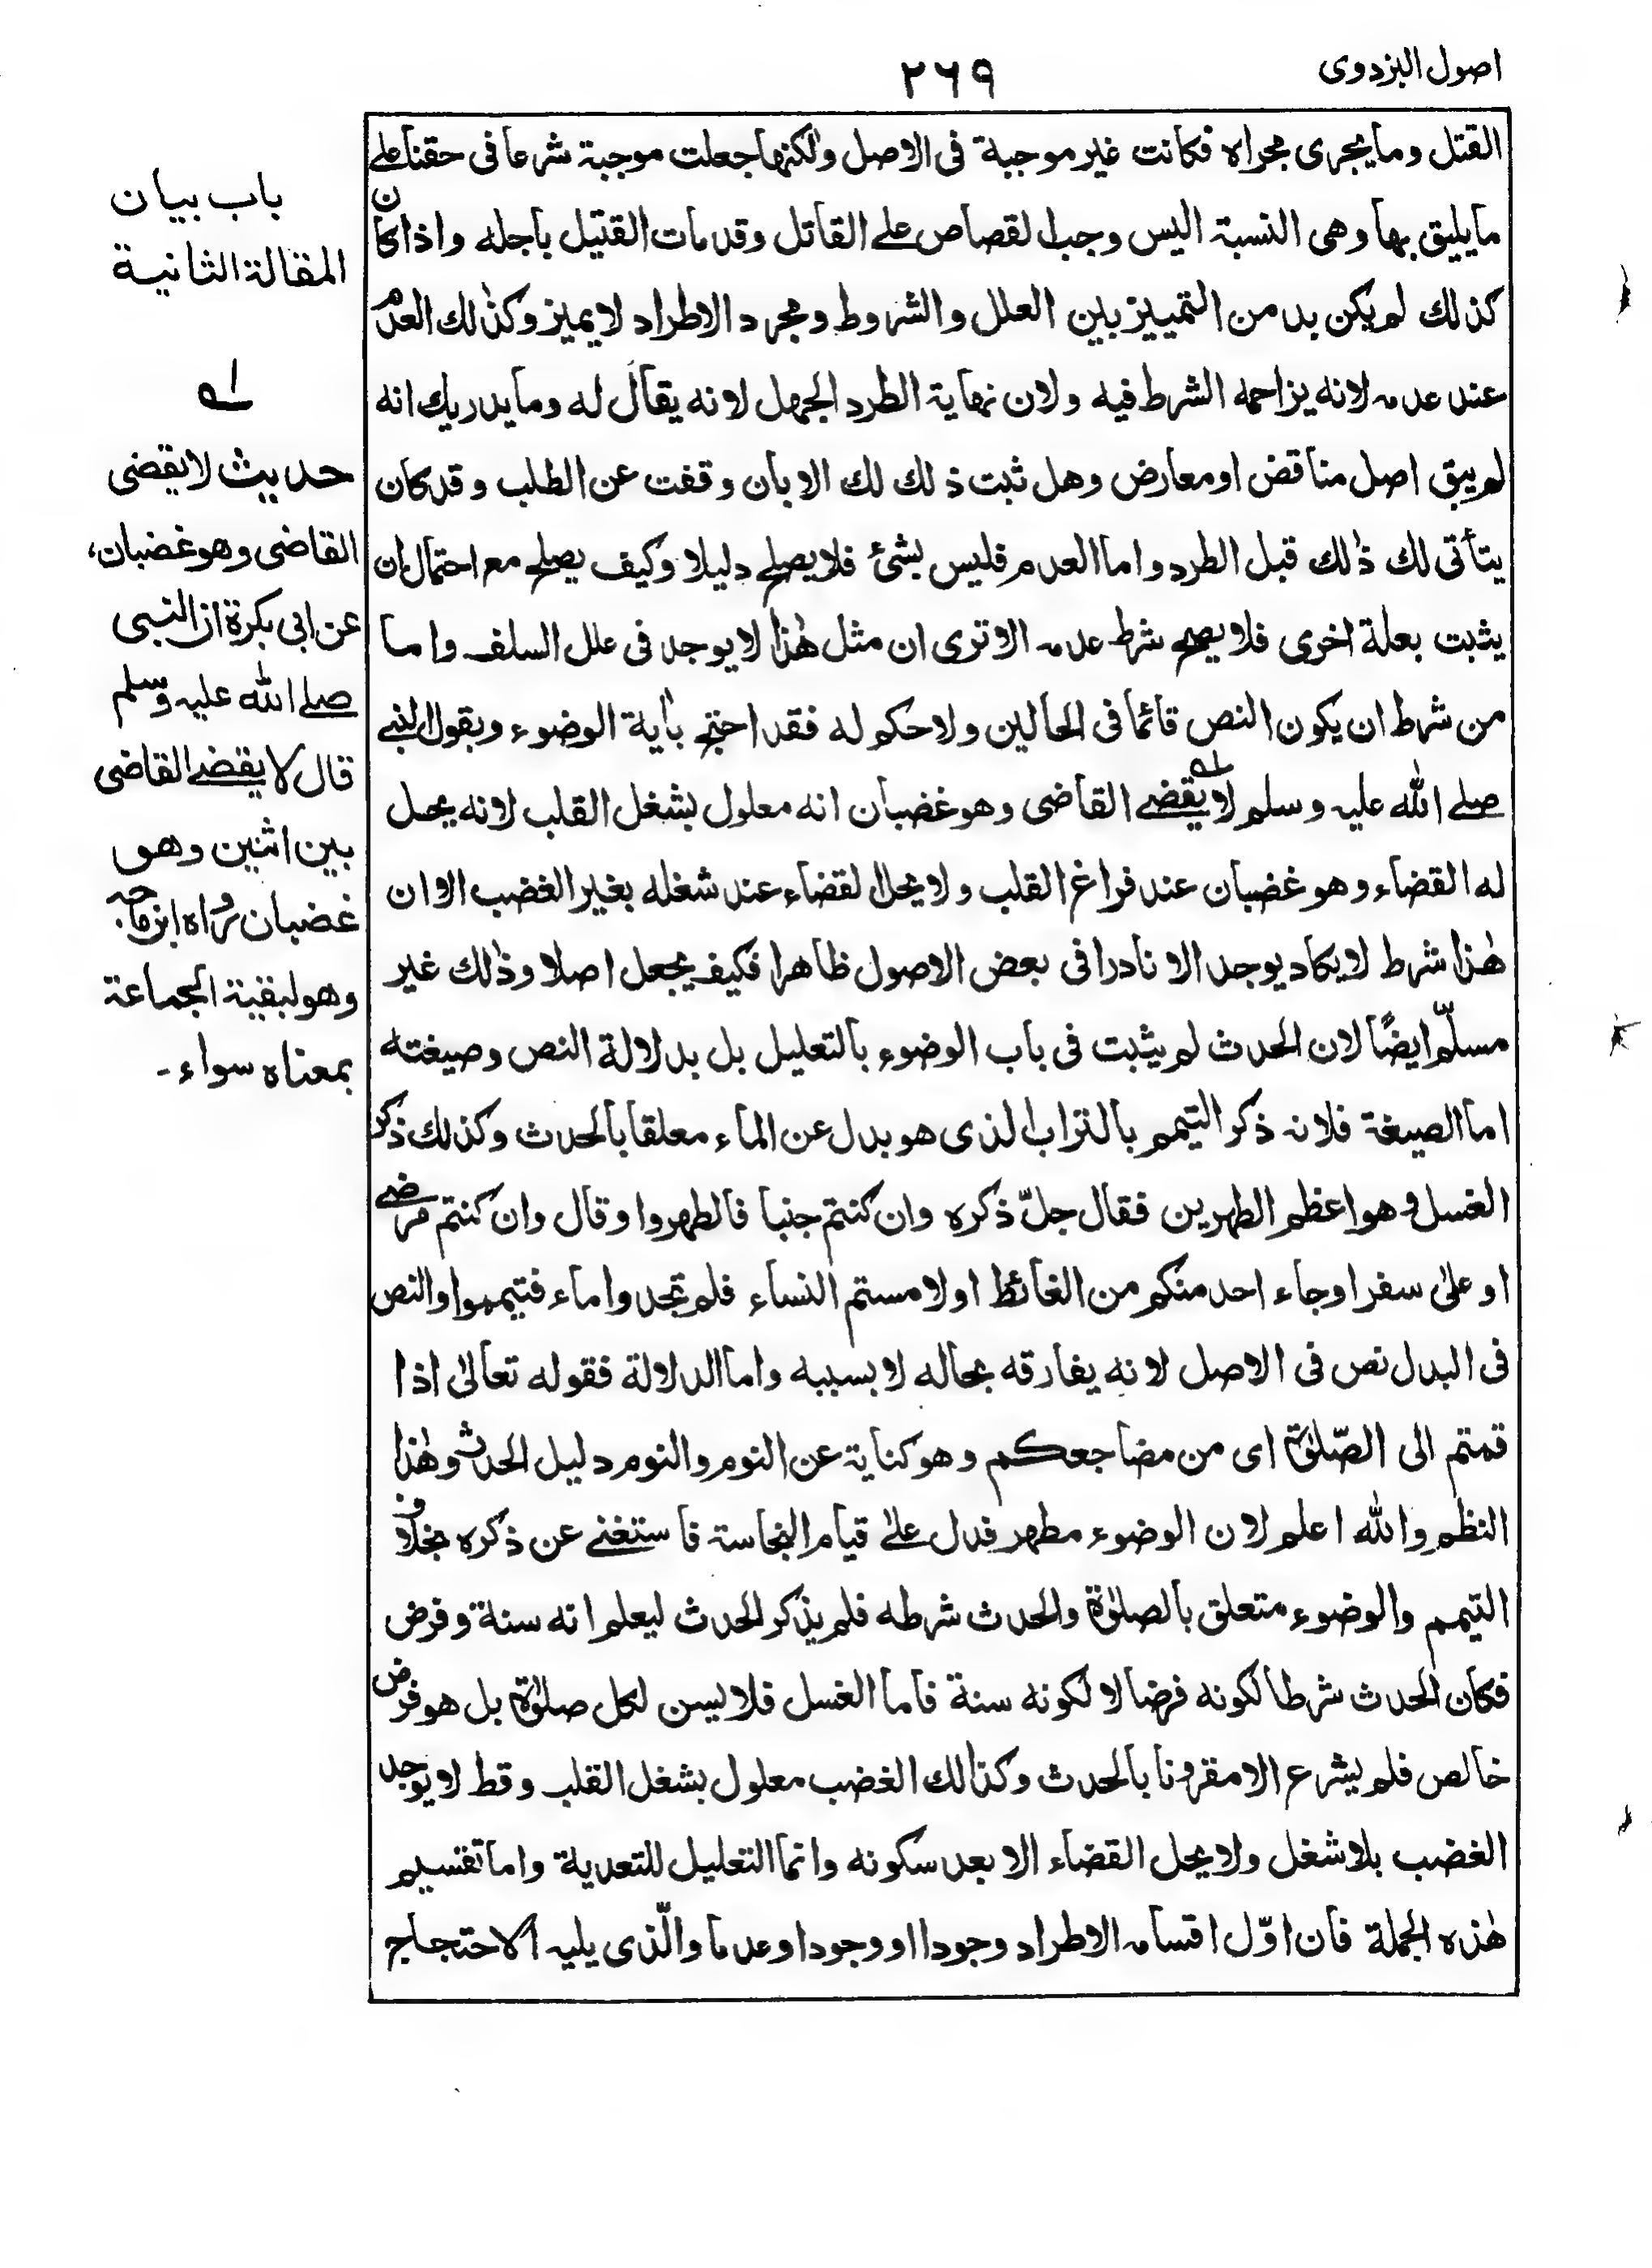 اصول البزدوى
٢٦٩
القتل وما يجرى مجراه فكانت غير موجبة فى الاصل ولكنها جعلت موجبة شرعا فى حقنا على
ما يليق بها وهى النسبة اليس وجب القصاص على القاتل وقد مات القتيل باجله واذا كان
كذلك لم يكن بد من التمييز بين العلل والشروط ومجرد الاطراد لا يميز وكذٰلك العدم
عند عدمه لانه يزاحمه الشرط فيه ولان نهاية الطرد الجهل لانه يقال له وما يدريك انه
لم يبق اصل مناقض او معارض وهل ثبت ذلك لك الا بان وقفت عن الطلب وقد كان
يتأتى لك ذٰلك قبل الطرد واما العدم فليس بشئ فلا يصلح دليلا وكيف يصلح مع احتمال ان
يثبت بعلة اخرى فلا يصح شرط عدمه الا ترى ان مثل هٰذا لا يوجد فى علل السلف واما
من شرط ان يكون النص قائما فى الحالين ولا حكم له فقد احتج بأية الوضوء وبقول النبى
صلى الله عليه وسلم لا يقضى القاضى وهو غضبان انه معلول بشغل القلب لانه يحل
له القضاء وهو غضبان عند فراغ القلب ولا يحل القضاء عند شغله بغير الغضب الا ان
هٰذا شرط لا يكاد يوجد الا نادرا فى بعض الاصول ظاهرا فكيف يجعل اصلا وذٰلك غير
مسلّم ايضًا لان الحدث لم يثبت فى باب الوضوء بالتعليل بل بدلالة النص وصيغته
اما الصيغة فلانه ذكر التيمم بالتراب الذى هو بدل عن الماء معلقا بالحدث وكذلك ذكر
الغسل وهو اعظم الطهرين فقال جلّ ذكره وان كنتم جنبا فاطهروا وقال وان كنتم مرضى
او علىٰ سفر او جاء احد منكم من الغائط او لامستم النساء فلم تجدوا ماء فتيمموا والنص
فى البدل نص فى الاصل لانه يفارقه بحاله لا بسببه واما الدلالة فقوله تعالىٰ اذا
قمتم الى الصّلوٰة اى من مضاجعكم وهو كناية عن النوم والنوم دليل الحدث وهٰذا
النظم والله اعلم لان الوضوء مطهر فدل على قيام النجاسة فاستغنى عن ذكره بخلاف
التيمم والوضوء متعلق بالصلوٰة والحدث شرطه فلم يذكر الحدث ليعلم انه سنة وفرض
فكان الحدث شرطا لكونه فرضا لا لكونه سنة فاما الغسل فلا يسن لكل صلوٰة بل هو فرض
خالص فلم يشرع الا مقرونا بالحدث وكذالك الغضب معلول بشغل القلب وقط لا يوجد
الغضب بلا شغل ولا يحل القضاء الا بعد سكونه وانما التعليل للتعدية واما تقسيم
هٰذه الجملة فان اوّل اقسامه الاطراد وجودا او وجودا وعدما والّذى يليه الاحتجاج
باب بيان
المقالة الثانية
لـه
حديث لا يقضى
القاضى وهو غضبان،
عن ابى بكرة ان النبى
صلى الله عليه وسلم
قال لا يقضى القاضى
بين اثنين وهو
غضبان رواه ابن ماجه
وهو لبقية الجماعة
بمعناه سواء -